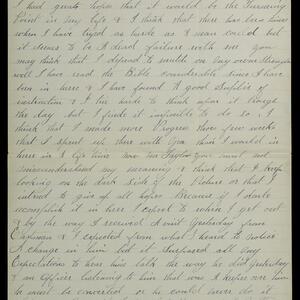 I had great hopes that it would be the Turning
Point in my life & I think that there has been times
when I have tryed as hard as a man could but
it seems to be A dead failure with me you
may think that I depend to much on my own Strength
well I have read the Bible considerable since I have
been in here & I have found A good Supplie of
instruction & I try hard to think upon it through
the day but I find it impossible to do so. I
think that I made more Progress those few weeks
that I spent up there with you than I would in
here in A life time now you must not
misunderstand my meaning & think that I keep
looking on the dark Side of the Picture or that I
intend to give up all hopes Because if I dont
accomplish it in here I expect to when I get out
& by the way I received A visit Yesterday from
Chapman & I expected from what I heard to notice
A change in him but it Surpased all my
Expectations to hear him talk the way he did Yesterday
& an officer listening to him that was A keeper over him
he must be converted or he could never do it